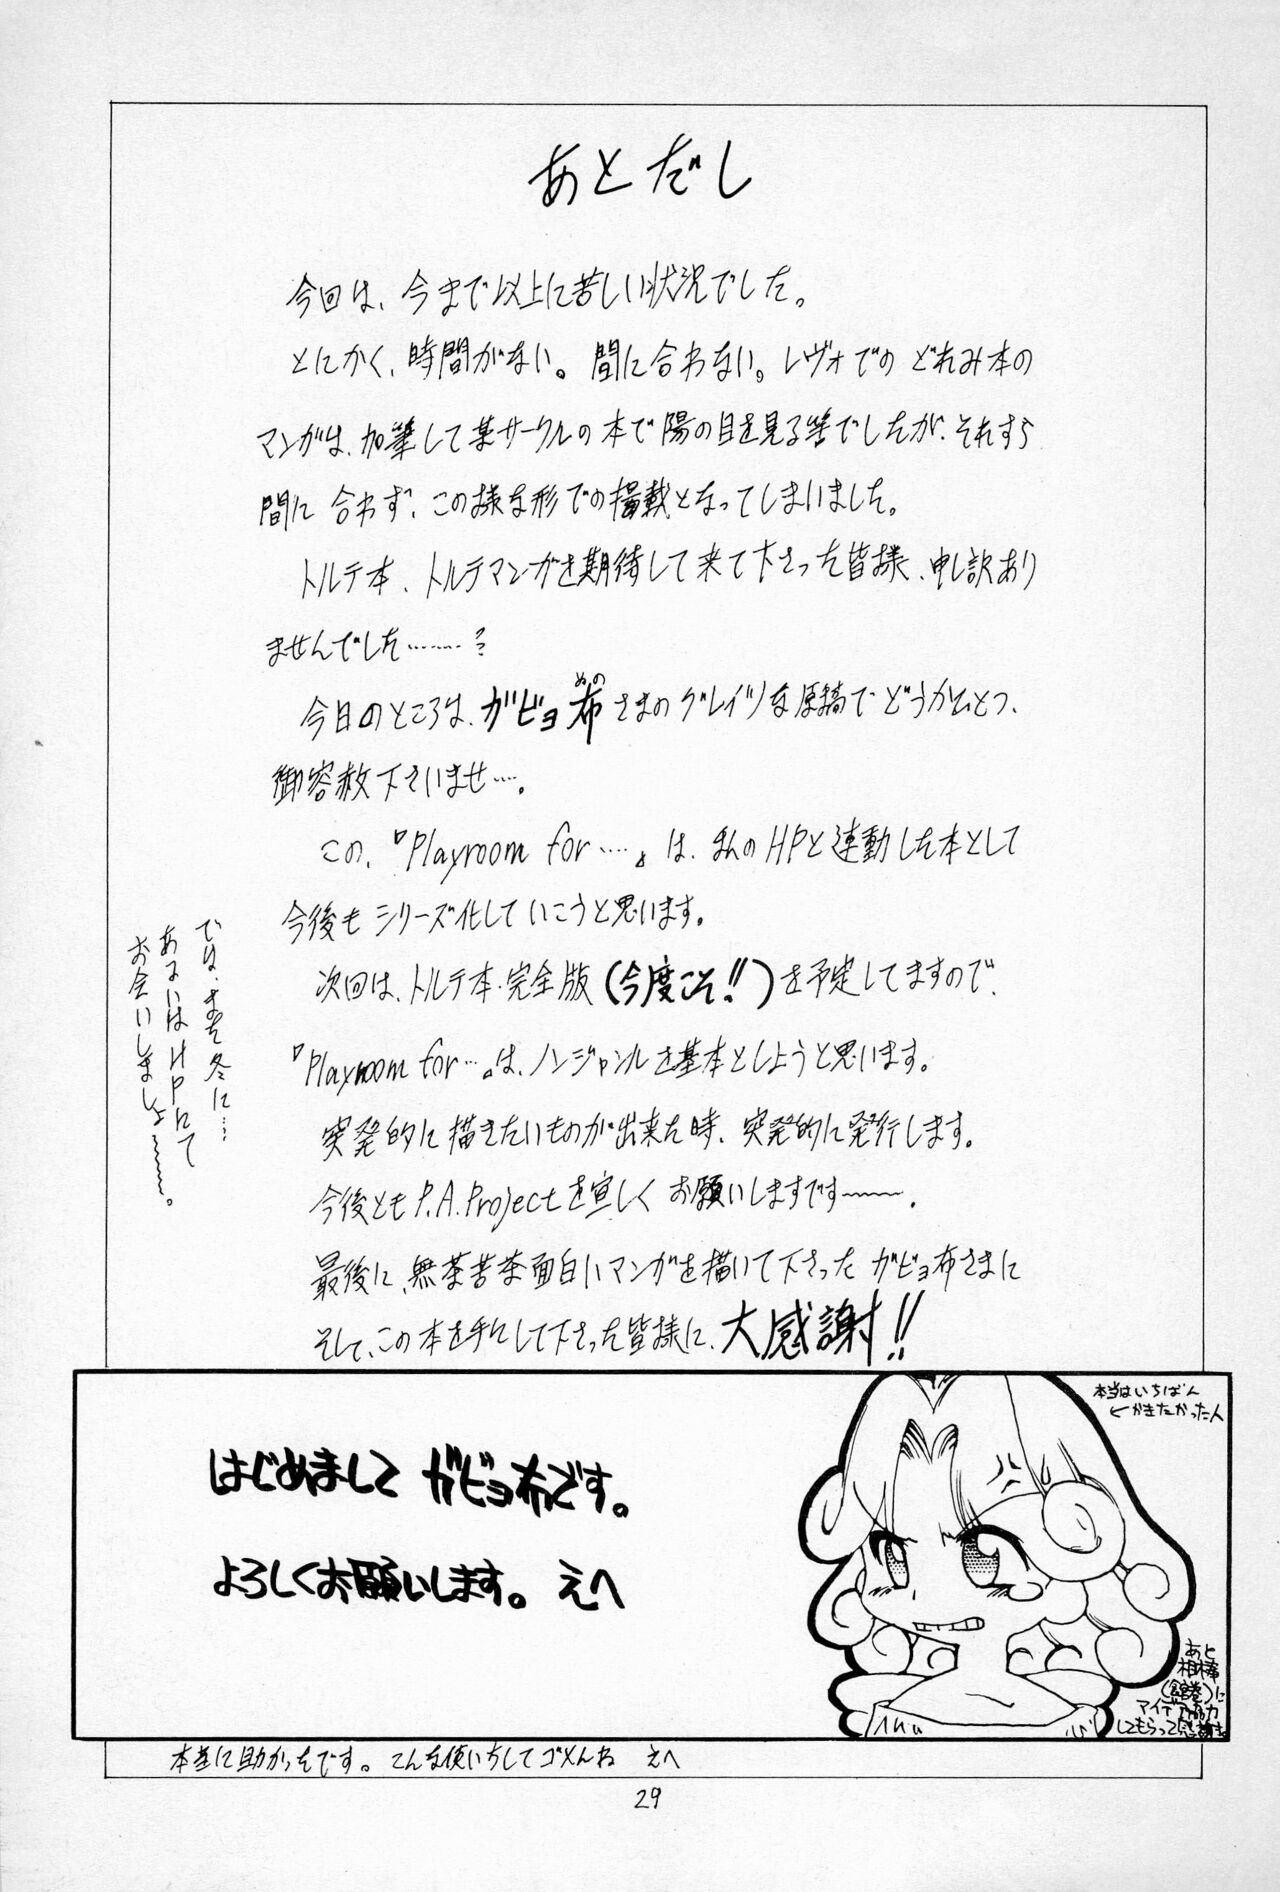 あとだし
今回は、今まで以上に苦しい状況でした。
とにかく、時間がない。間に合わない。レヴォでの どれみ本の
マンガは、加筆して某サークルの本で陽の目を見る筈でしたが、それすら
間に合わず、この様な形での掲載となってしまいました。
トルテ本、トルテマンガを期待して来て下さった皆様、申し訳あり
ませんでした………?
今日のところは、ガビョ布さまのグレイツな原稿で どうかひとつ、
ぬの
御容赦下さいませ…。
この、『Playroom for …』は、まんのHPと連動した本として
今後も シリーズ化して いこうと思います。
次回は、トルテ本・完全版(今度こそ!!)を予定してますので、
『Playroom for …』は、ノンジャンルを基本としようと思います。
突発的に描きたいものが出来た時、突発的に発行します。
今後とも P.A.Projectを宜しく お願いしますです〜〜。
最後に、無茶苦茶面白いマンガを描いて下さった ガビョ布さまに
そして、この本を手にして下さった皆様に、大感謝!!
では、また冬に…
あるいはHPにて
お会いしましょ〜〜。
はじめまして ガビョ布です。
よろしくお願いします。 えへ
本当はいちばん
←かきたかった人
あと
相棒
に
アイデア協力
してもらって感謝を。
本当に助かったです。こんな使い方してゴメんね えへ
29